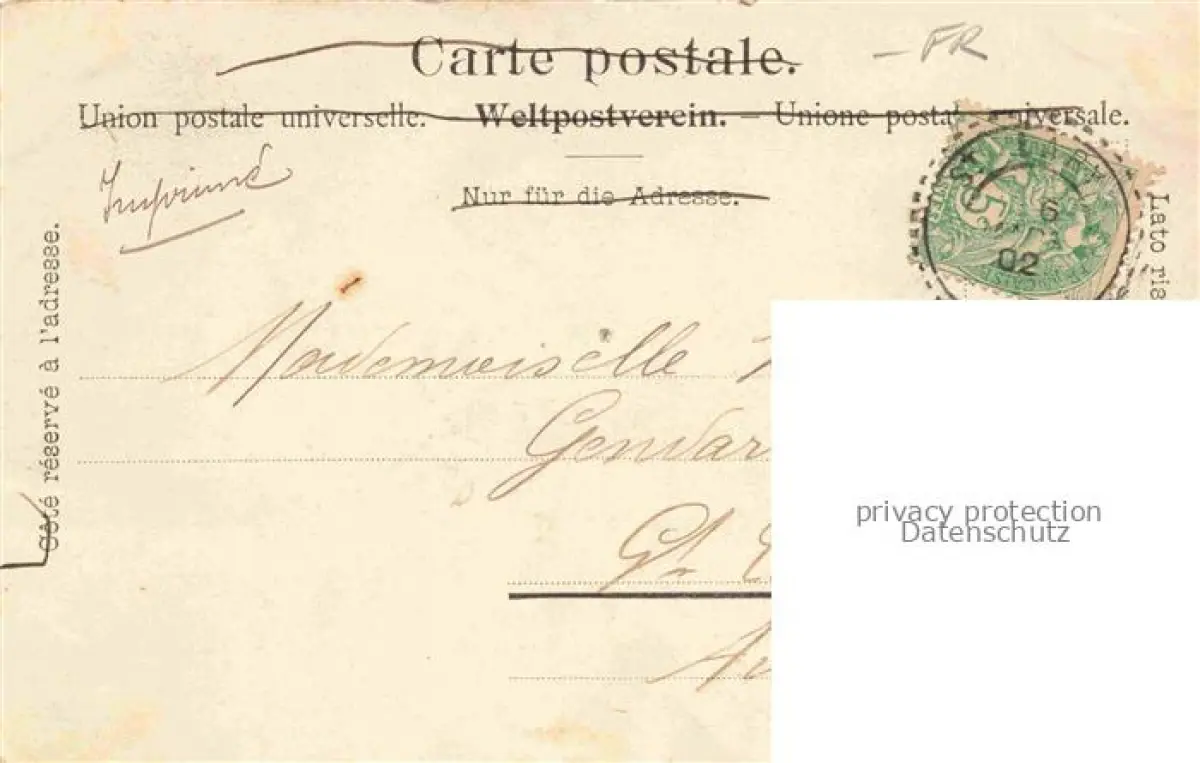 Carte postale.
FR
Union postale universelle. – Weltpostverein. – Unione postal universale.
Nur für die Adresse.
Imprimé
Côté réservé à l'adresse.
Lato ris
5
6
02
Mademoiselle
Gendar
privacy protection
Datenschutz